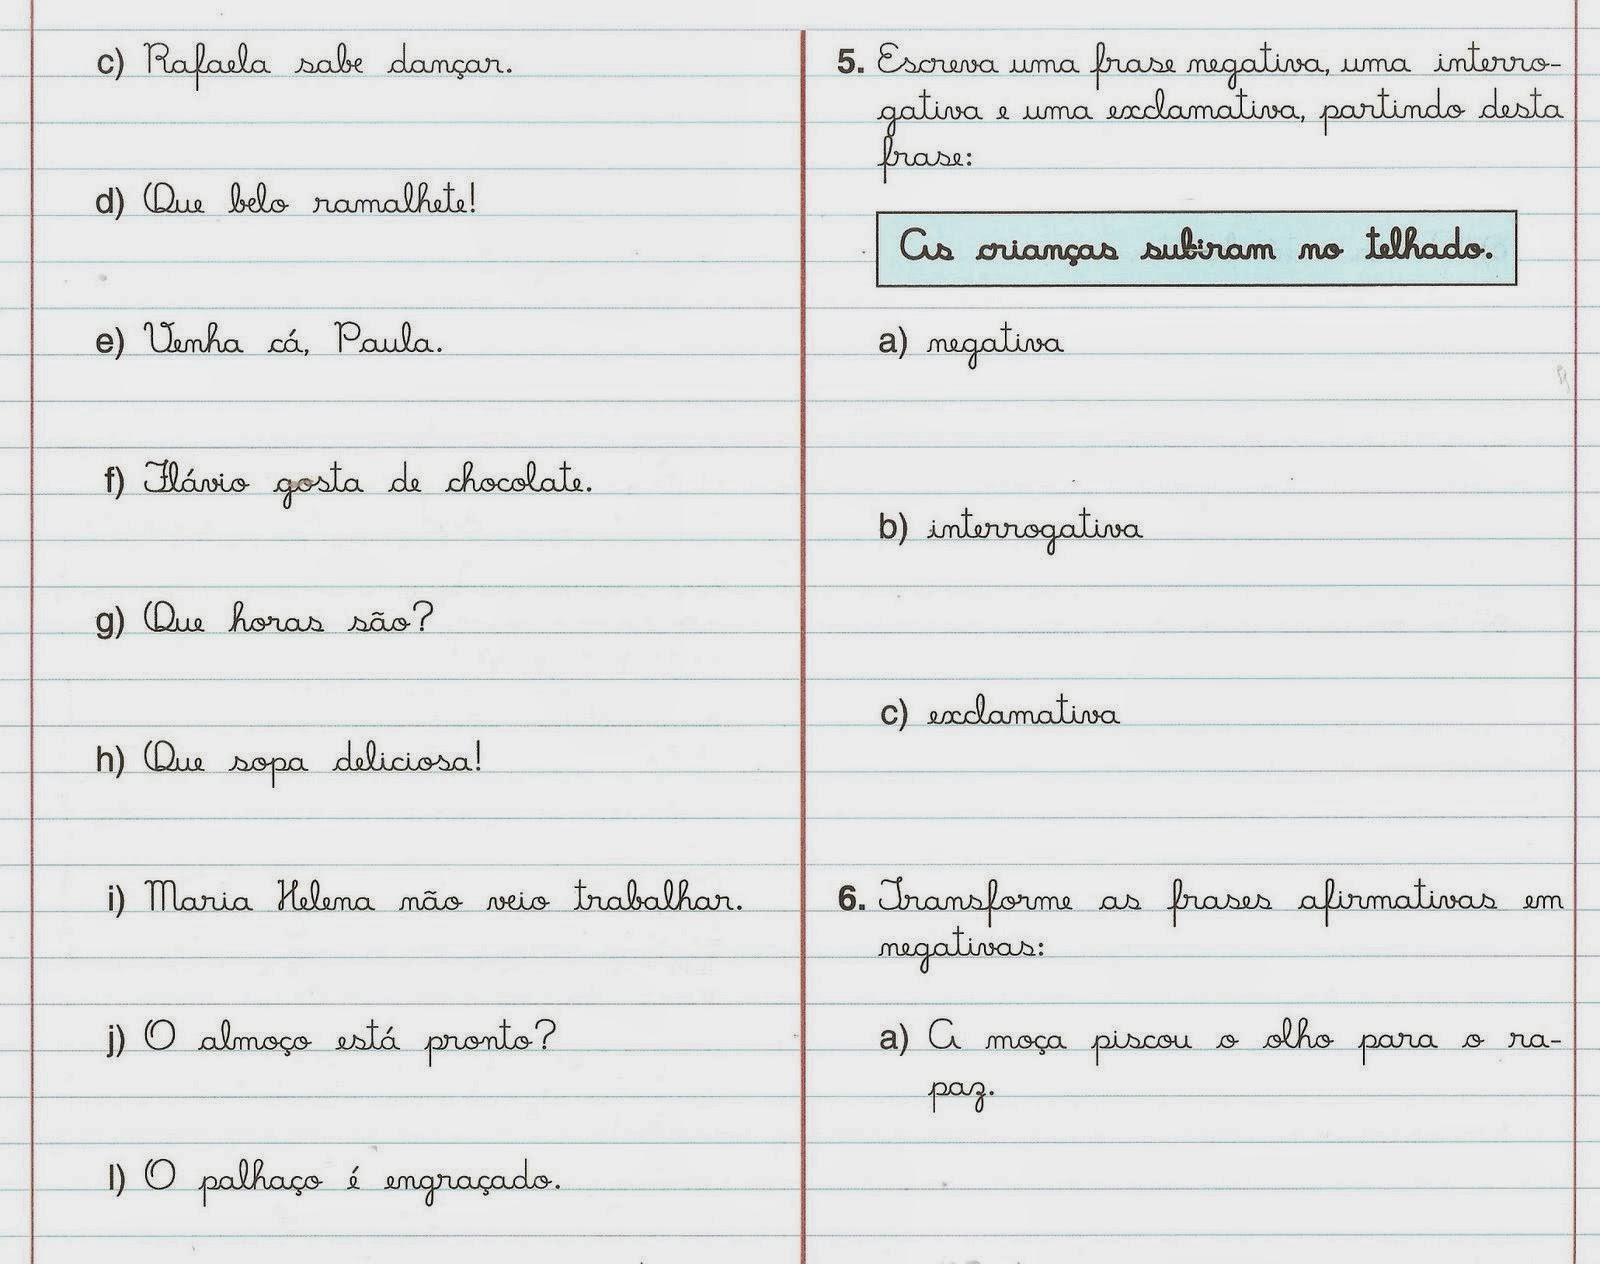 c) Rafaela sabe dançar.
d) Que belo ramalhete!
e) Venha cá, Paula.
f) Flávio gosta de chocolate.
g) Que horas são?
h) Que sopa deliciosa!
i) Maria Helena não veio trabalhar.
j) O almoço está pronto?
l) O palhaço é engraçado.
5. Escreva uma frase negativa, uma interro-
gativa e uma exclamativa, partindo desta
frase:
As crianças subiram no telhado.
a) negativa
b) interrogativa
c) exclamativa
6. Transforme as frases afirmativas em
negativas:
a) A moça piscou o olho para o ra-
paz.